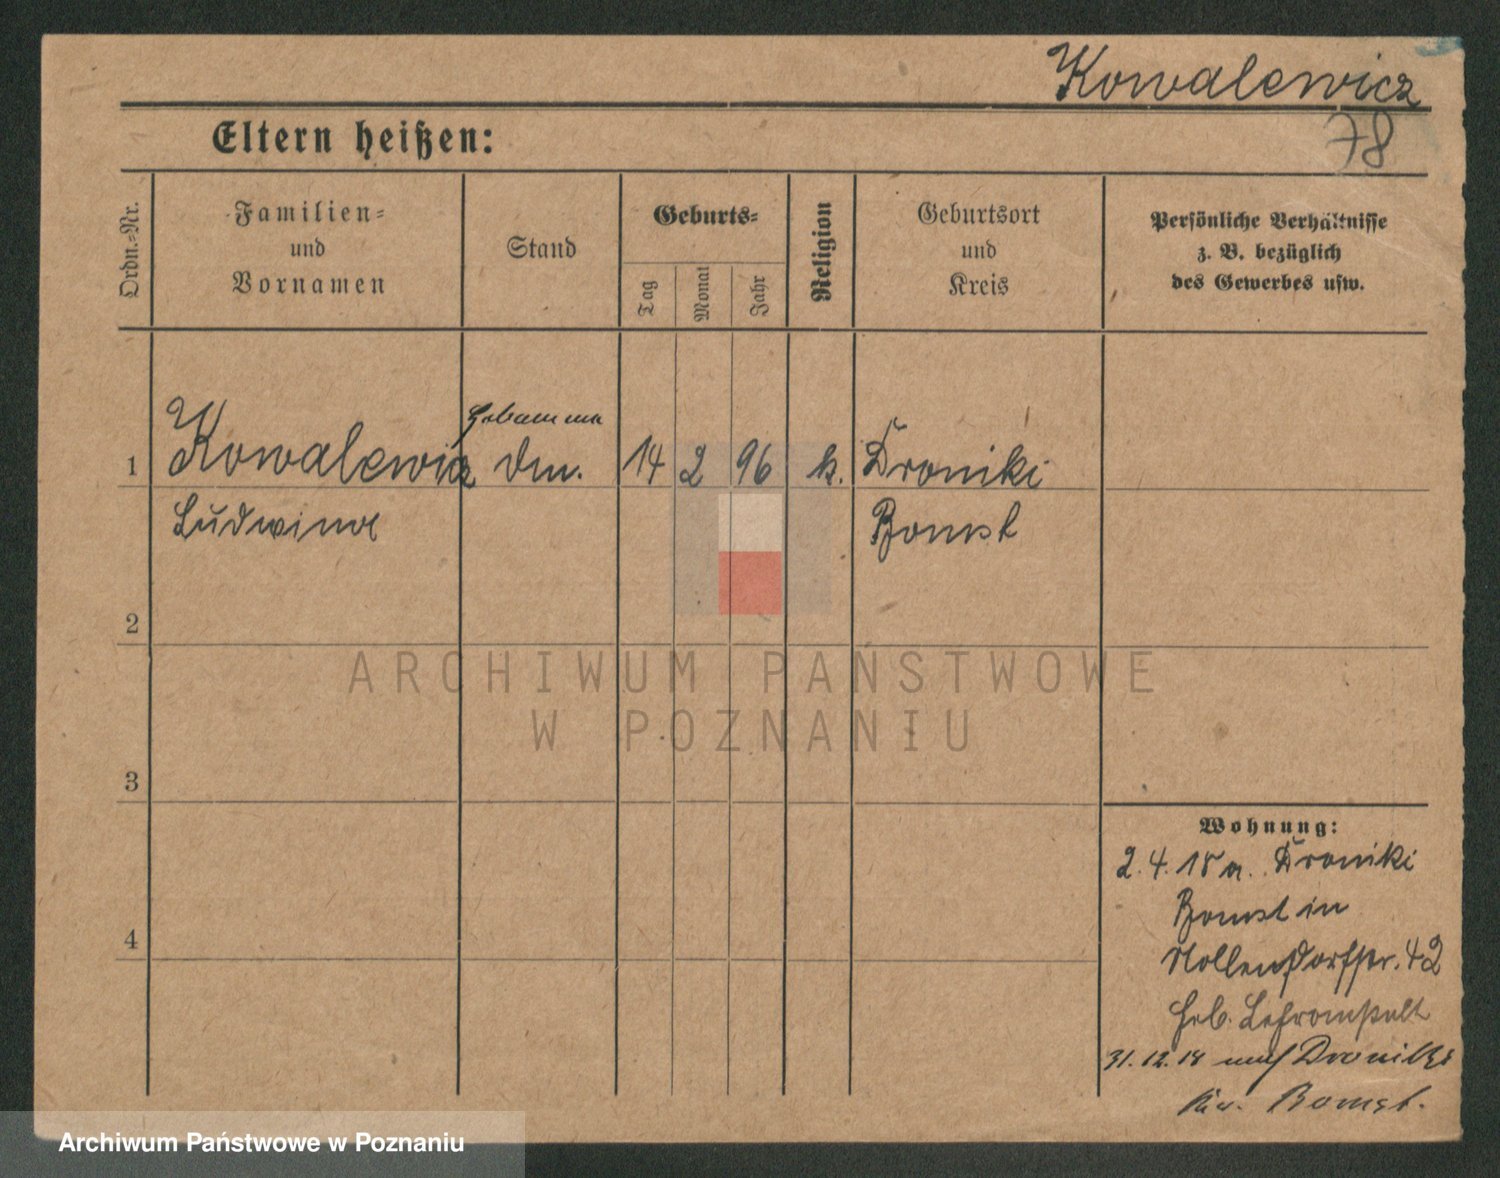 Kowalewicz
78
Eltern heißen:
Ordn.=Nr.
Familien=
und
Vornamen
Stand
Geburts=
Tag
Monat
Jahr
Religion
Geburtsort
und
Kreis
Persönliche Verhältnisse
z. B. bezüglich
des Gewerbes usw.
Hebamme
1 Kowalewicz 14 2 96 k. Droniki
Ludwina Bomst
2
3
4
Wohnung:
2.4.18 a. Droniki
Bomst in
Nollendorfstr. 42
Heb.
31.12.18 nach Droniki
Kr. Bomst.
ARCHIWUM PAŃSTWOWE
W POZNANIU
Archiwum Państwowe w Poznaniu